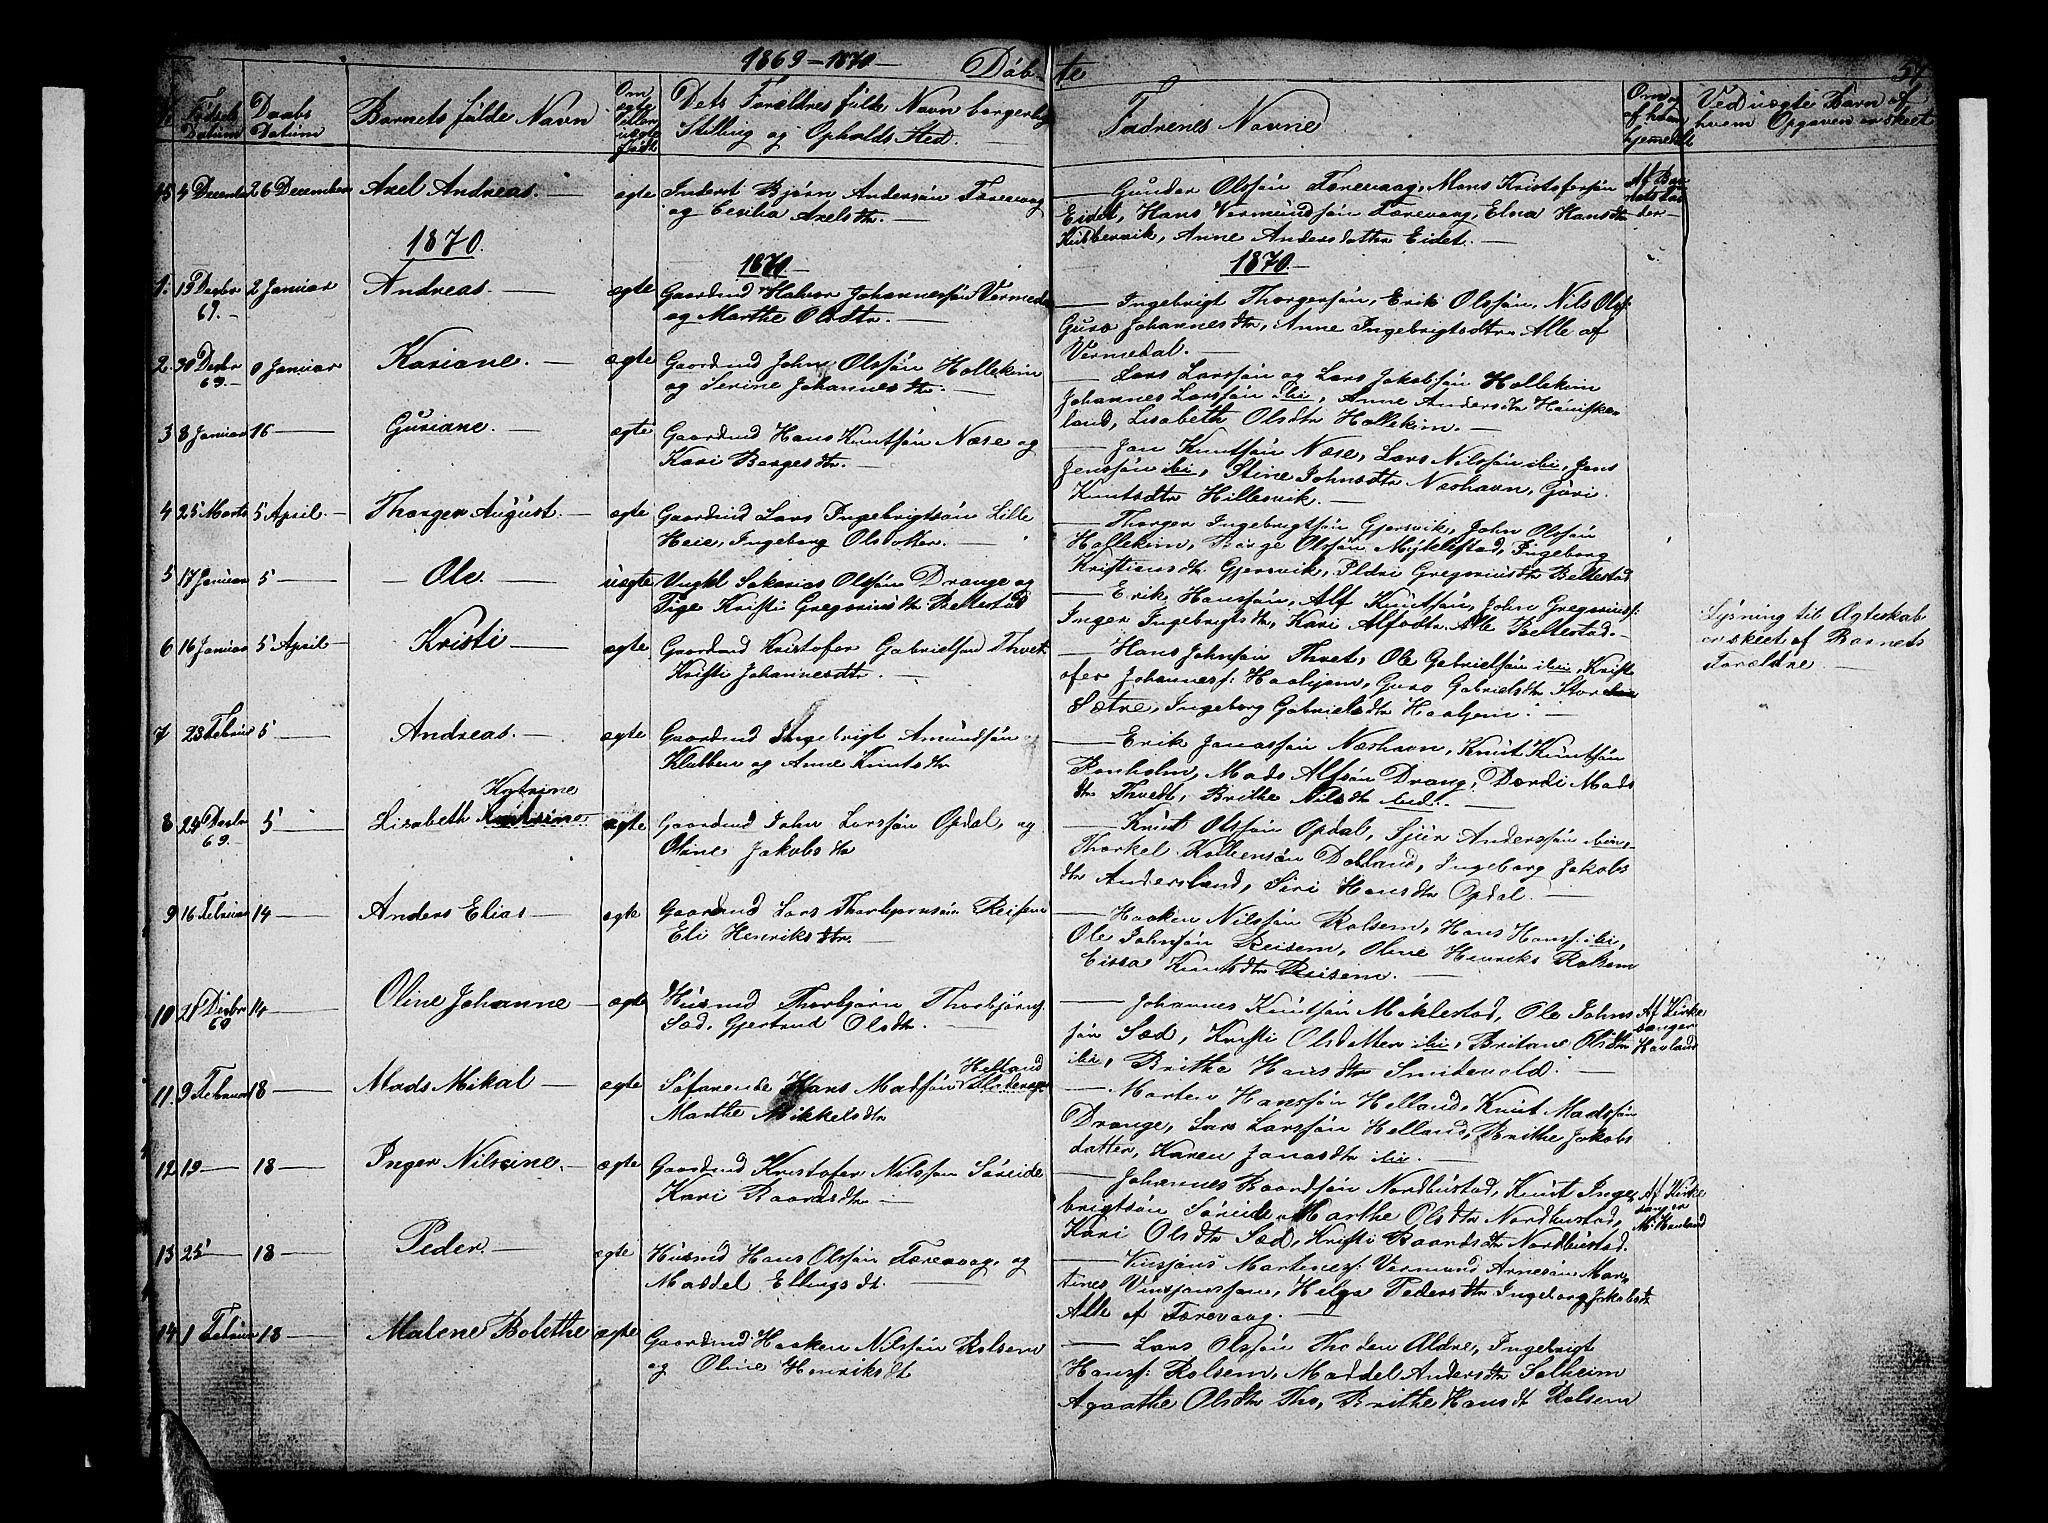 1869-1870
Döb-te
Fødsels Datum
Daabs Datum
Barnets fulde Navn
Om ægte eller uægte født
Dets Forældres fulde Navn borgerlig Stilling og Opholds Sted.
Fadrenes Navne
Om og af hvem hjemedøbt
Ved uægte Barn af hvem Opgaven er skeet
4 December 26 December Axel Andreas. ægte Inderst Bjørn Andersøn Færevaag
og Cecilia Axelsdtr.
Gunder Olssøn Færevaag, Mons Kristofersøn
Eidet, Hans Vermundsøn Færevaag, Elna Hansdtr
Kubbervik, Anne Andersdatter Eidet.
1870.
1870
1870.
1. 13 Desbr 69. 2 Januar Andreas. ægte Gaardmd Halvor Johannessøn Vermedal
og Marthe Olsdtr.
Ingebrigt Thorgersøn, Erik Olssøn, Nils Olsf:
Guro Johannesdtr, Anne Ingebrigtsdtr Alle af
Vermedal.
2. 30 Desbr 69 Januar Kasiane. ægte Gaardmd John Olssøn Hollekim
og Serine Johannesdtr.
Lars Larssøn og Lars Jakobsøn Hollekim
Johannes Larssøn ibi, Anne Andersdtr Høviske-
land, Lisabeth Olsdtr Hollekim.
3 8 Januar 16 Guriane. ægte Gaardmd Hans Knutsøn Næse og
Kari Børgesdtr.
Jan Knutsøn Næse, Lars Nilssøn ibi, Jens
Jenssøn ibi, Stine Johnsdtr Næshavn, Guri
Knutsdtr Hillesvik.
4 25 Marts 5 April. Thorger August. ægte Gaardmd Lars Ingebrigtsøn Lille
Heie, Ingeborg Olsdotter.
Thorger Ingebrigtsøn Gjersvik, John Olssøn
Hollekim, Børge Olssøn Myklestad, Ingeborg
Kristiansdtr Gjersvik, Eldri Gregoriusdtr Beltestad
5 17 Januar 5 Ole. uægte Ungkl Sakarias Olssøn Drange og
Pige Kristi Gregoriusdtr Beltestad
Erik Hanssøn, Alf Knutsøn, John Gregoriusf:
Inger Ingebrigtsdtr, Kari Alfsdtr. Alle Beltestad.
Lysning til Ægteskab
er skeet af Barnets
Forældre
6 16 Januar 5 April Kristi ægte Gaardmd Kristofer Gabrielsen Thvet
Kristi Johannesdtr.
Hans Johnsøn Thvet, Ole Gabrielsøn ibi, Krist-
ofer Johannesf: Haaljem, Guro Gabrielsdtr Store
Sætre, Ingeborg Gabrielsdtr Haaljem.
7 23 Februar 5 Andreas. ægte Gaardmd Ingebrigt Amundsøn
Klubben og Anne Knutsdtr
Erik Jonassøn Næshavn, Knut Knutsøn
Rønholm, Mads Alfsøn Drang, Dordi Mads
dtr Thvedt, Brithe Nilsdtr ibid.
8 24 Desbr 69. 5 Lisabeth Katrine ægte Gaardmd John Larssøn Opdal, og
Oline Jakobsdtr
Knut Olssøn Opdal, Sjur Anderssøn ibi,
Thorkel Kolbensøn Dalland, Ingeborg Jakobs
dtr Andersland, Siri Hansdtr Opdal.
9 16 Februar 14 Anders Elias ægte Gaardmd Lars Thorbjørnsøn Reisem
Eli Henriksdtr.
Haaken Nilssøn Rolsem, Hans Hansf: ibi,
Ole Johnsøn Reisem, Oline Henriks Rolsem
Cissa Knutsdtr Reisem.
10 21 Desbr 69 14 Oline Johanne ægte Husmd Thorbjørn Thorbjørns.
Sæd, Gjertrud Olsdtr.
Johannes Knutsøn Meklestad, Ole Johns-
søn Sæd, Kristi Olsdatter ibi, Britane Olsdtr
ibi, Brithe Hansdtr Smidevold.
Af Kirke
sanger
Havland
11. 9 Februar 18 Mads Mikal ægte Søfarende Hans Madsøn Helland
Marthe Mikkelsdtr
Morten Hanssøn Helland, Knut Madssøn
Drange, Lars Larssøn Helland, Brithe Jakobs
datter, Karen Jonasdtr ibi.
12 19 18 Inger Nilsine. ægte Gaardmd Kristofer Nilssøn Søreide
Kari Baardsdtr
Johannes Baardsøn Nordhustad, Knut Inge-
brigtsøn Søreide, Marthe Olsdtr Nordhustad,
Kari Olsdtr Sæd, Kristi Baardsdtr Nordhustad.
Af Kirke
sanger
M. Havland
13 25 18 Peder. ægte Husmd Hans Olssøn Færevaag, og
Maddel Ellingsdt.
Vinsjans Martinesf. Vermund Arnesøn Mar-
tines Vinsjanssøn, Helga Pedersdtr Ingeborg Jakobsdt
Alle af Færevaag.
14 1 Februar 18 Malene Bolethe ægte Gaardmd Haaken Nilssøn Rolsem
og Oline Henriksdt
Lars Olssøn Tho den Ældre, Ingebrigt
Hansf: Rolsem, Maddel Andersdtr Solheim
Agaathe Olsdtr Tho, Brithe Hansdt Rolsem